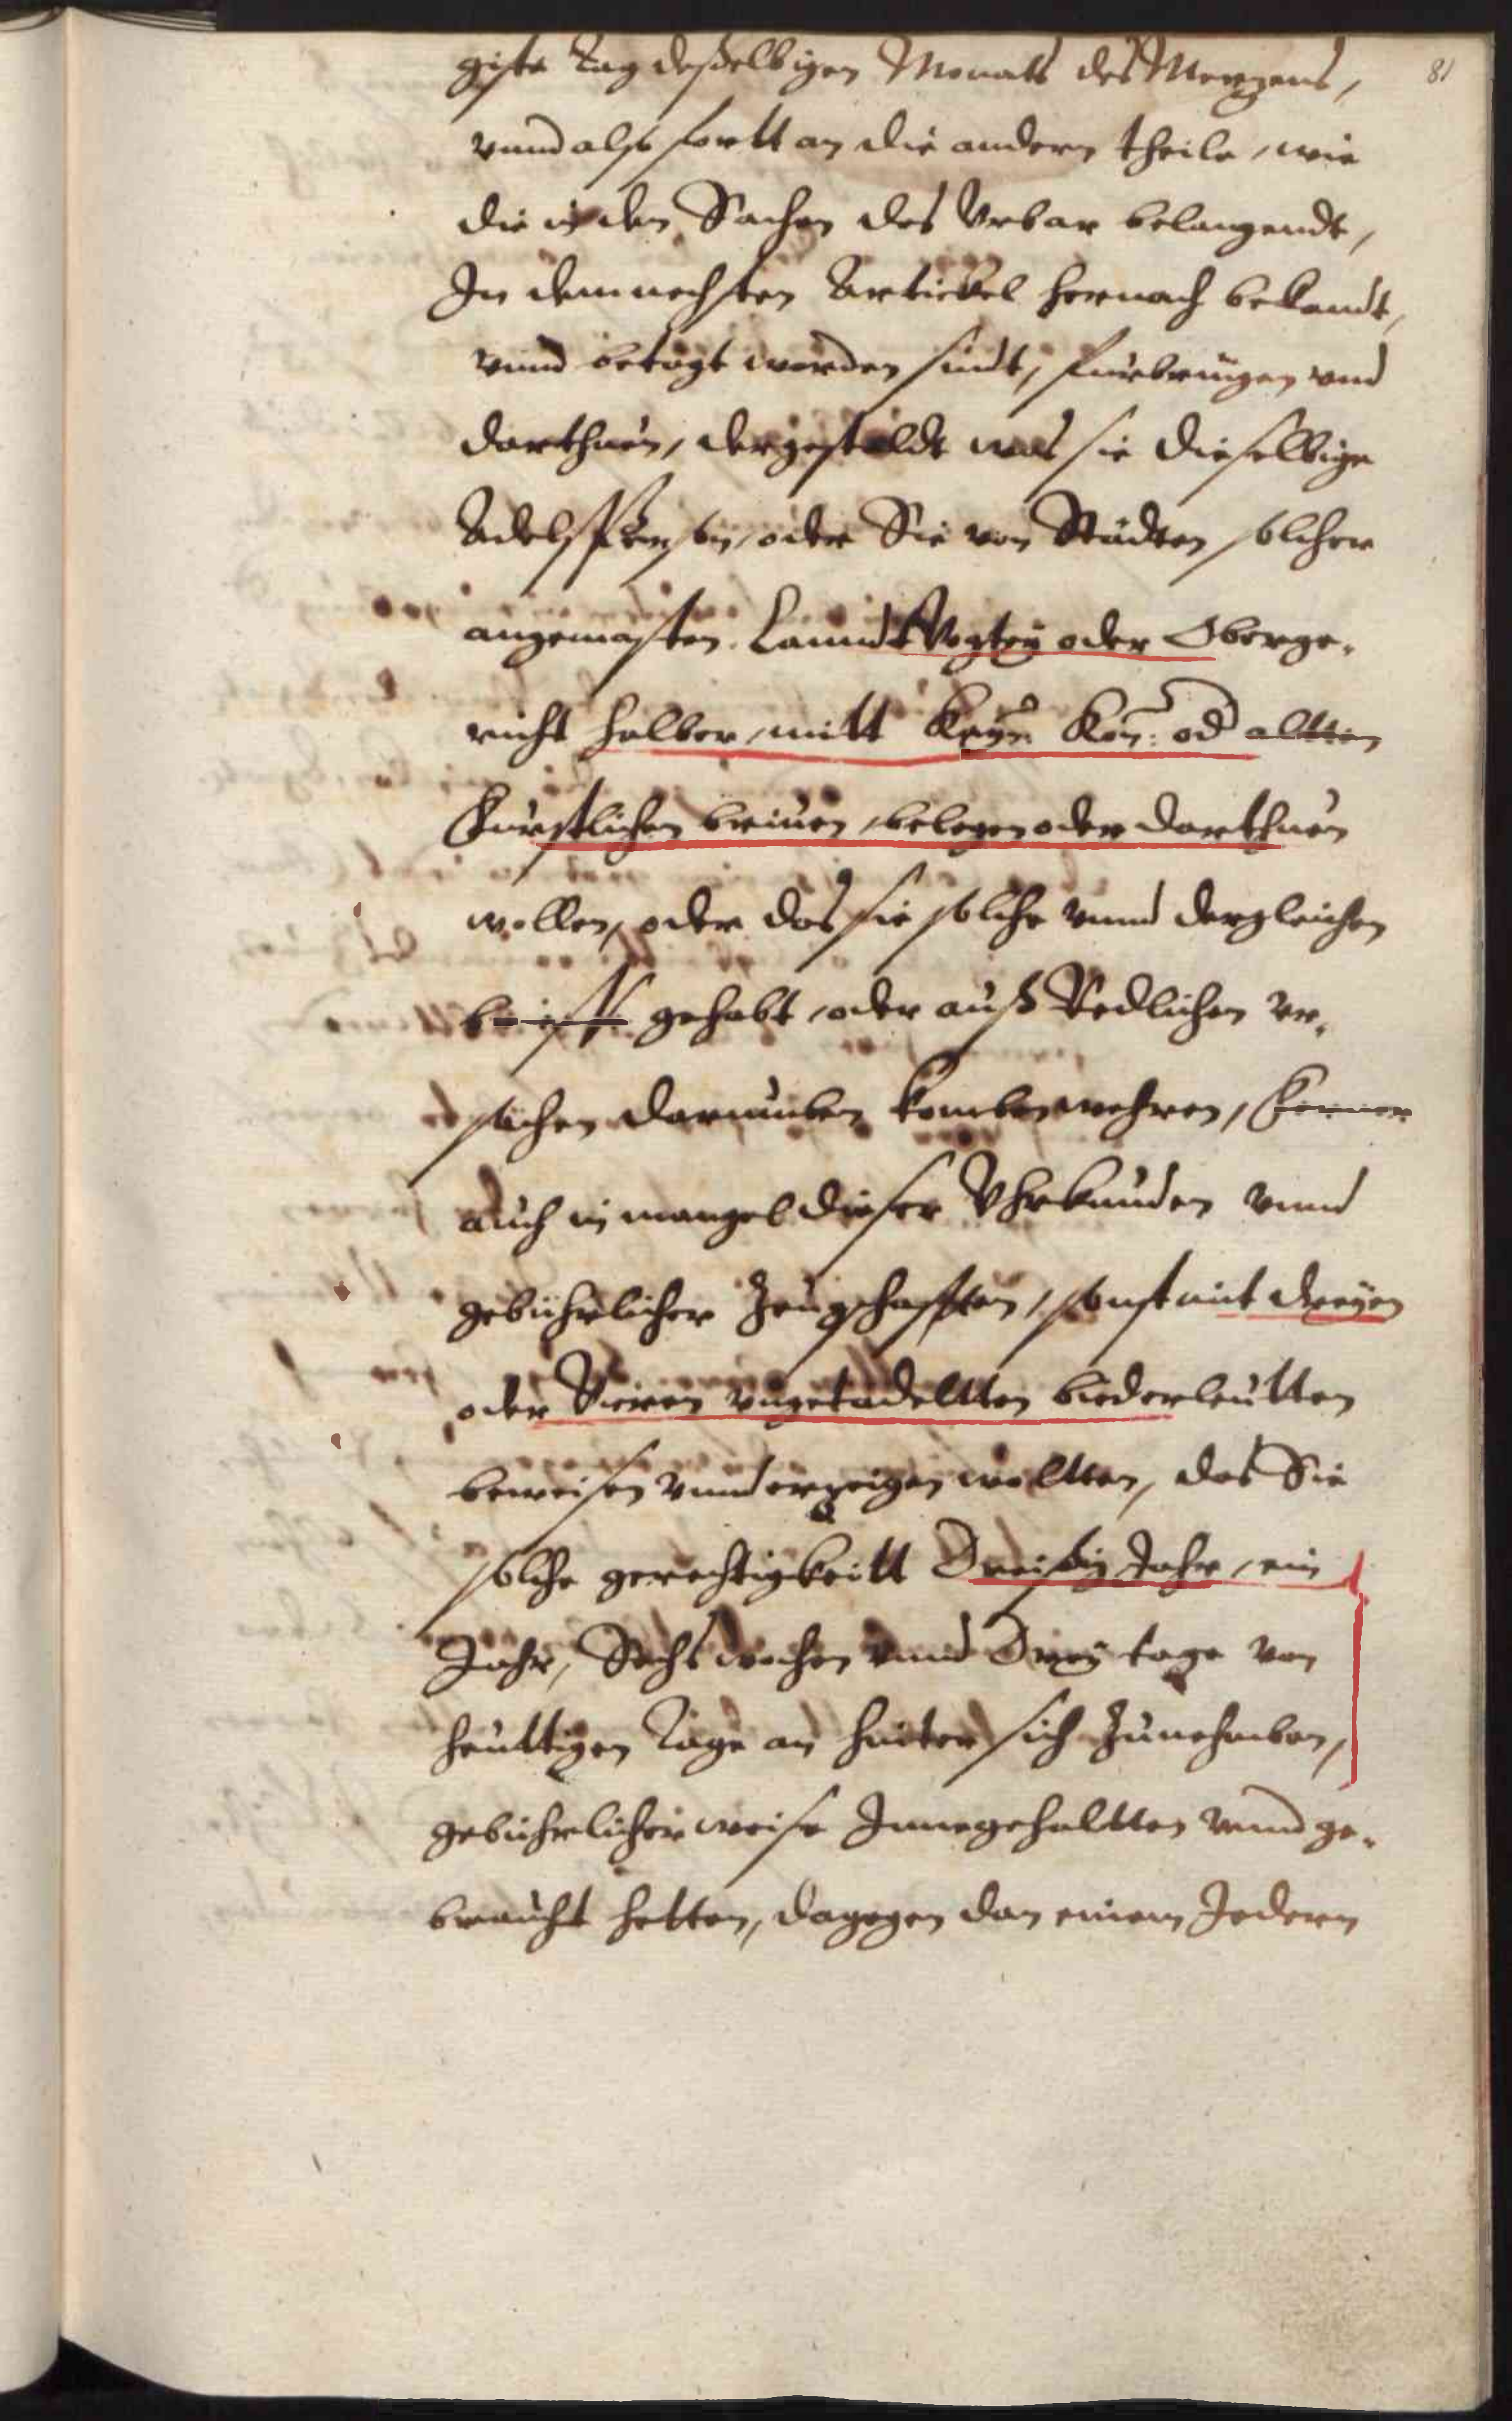 81
giste Tag deßelbigen Monats des Morgens,
vnnd also fortt an die andern theile, wie
die in den Sachen des Vrbar belangendt,
In dem nechsten Artickel hernach bekandt,
vnnd betagt worden sindt, furbringen vnd
darthuen, dergestaldt was sie dieselbige
Adelspersonen, oder Sie von Städten solcher
angemasten Lanndt Vogtey oder Oberge-
richt halber, mitt Keys: Kön: od altten
Fürstlichen brieuen, belegen oder darthuen
wollen, oder das sie solche vnnd dergleichen
brieff gehabt, oder auß Redlichen vr-
sachen darumben komben wehren, Ferner
auch in mangel dieser Vhrkunden vnnd
gebührlicher Zeugschafften, sonst mit dreyen
oder Vieren vngetadeltten biederleutten
beweisen vnnd erzeigen woltten, das Sie
solche gerechtigkeitt Dreißig Jahr, ein
Jahr, Sechs wochen vnnd Drey tage von
heuttigen Tage an hinter sich zunehmben,
gebührlicher weise Innegehaltten vnnd ge-
braucht hetten, dagegen dan einem Jedern